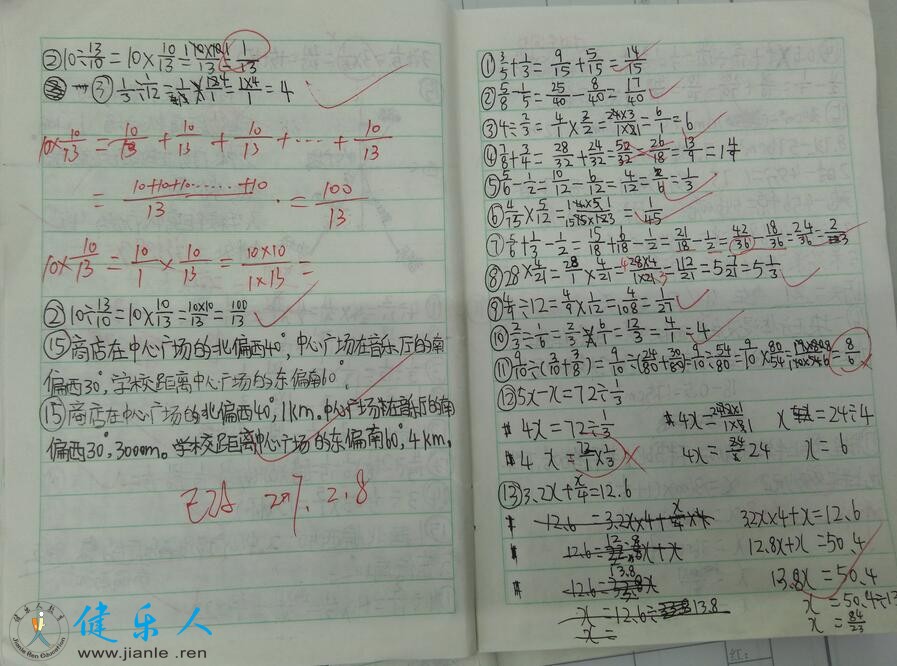 ②10÷13/10=10×10/13=
1/13
③1/3÷1/12=1/3×12/1==4
10×10/13=10/13+10/13+10/13+…+10/13
=10+10+10……+10/13=100/13
10×10/13=10/1×10/13=10×10/1×13=
②10÷13/10=10×10/13=10×10/13=100/13
⑮商店在中心广场的北偏西40°,中心广场在音乐厅的南
偏西30°,学校距离中心广场的东偏南60°.
⑮商店在中心广场的北偏西40°,1km。中心广场在音乐厅的南
偏西30°,3000m。学校距离中心广场的东偏南60°,4km。
已改 2.8
①3/5+1/3=9/15+5/15=14/15
②5/8-1/5=25/40-8/40=17/40
③4÷2/3=6/1=6
④7/8+3/4=28/32+24/32=52/32=26/18=13/9=1 4/9
⑤5/6-1/2=10/12-6/12=4/12=1/3
⑥4/15×5/12==1/45
⑦5/6+1/3-1/2=15/18+6/18-1/2=21/18-1/2=42/36-18/36=24/36=2/3
⑧28×4/21=28/1×4/21=28×4/1×21=112/21=5 7/21=5 1/3
⑨4/9÷12=4/9×1/12=4/108=1/27
⑩2/3÷1/6=2/3×6/1=12/3=4/1=4
⑪9/10÷(3/10+3/8)=9/10÷(24/80+30/80)=9/10÷54/80=9/10×80/54==8/6
⑫5x-x=72÷1/3
4x=72÷1/3
4x=
x=24÷4
4x=72/1×1/3
4x=24
x=6
⑬3.2x+x/4=12.6
12.6=3.2x×4+x/4×4
32x×4+x=12.6
12.8x+x=50.4
13.8x=50.4
x=12.6÷13.8
x=50.4÷13
x=
x=84/23
健乐人教育
Jianle Ren Education
健乐人
www.jianle.ren